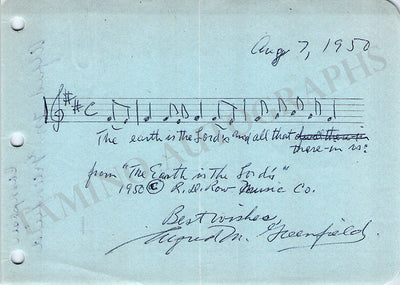 Aug 7, 1950
The earth is the Lord's and all that dwell therein
there-in is:
from "The Earth is the Lord's"
1950 © R.D. Row Music Co.
Best wishes,
Alfred M. Greenfield.
TAMINO AUTOGRAPHS